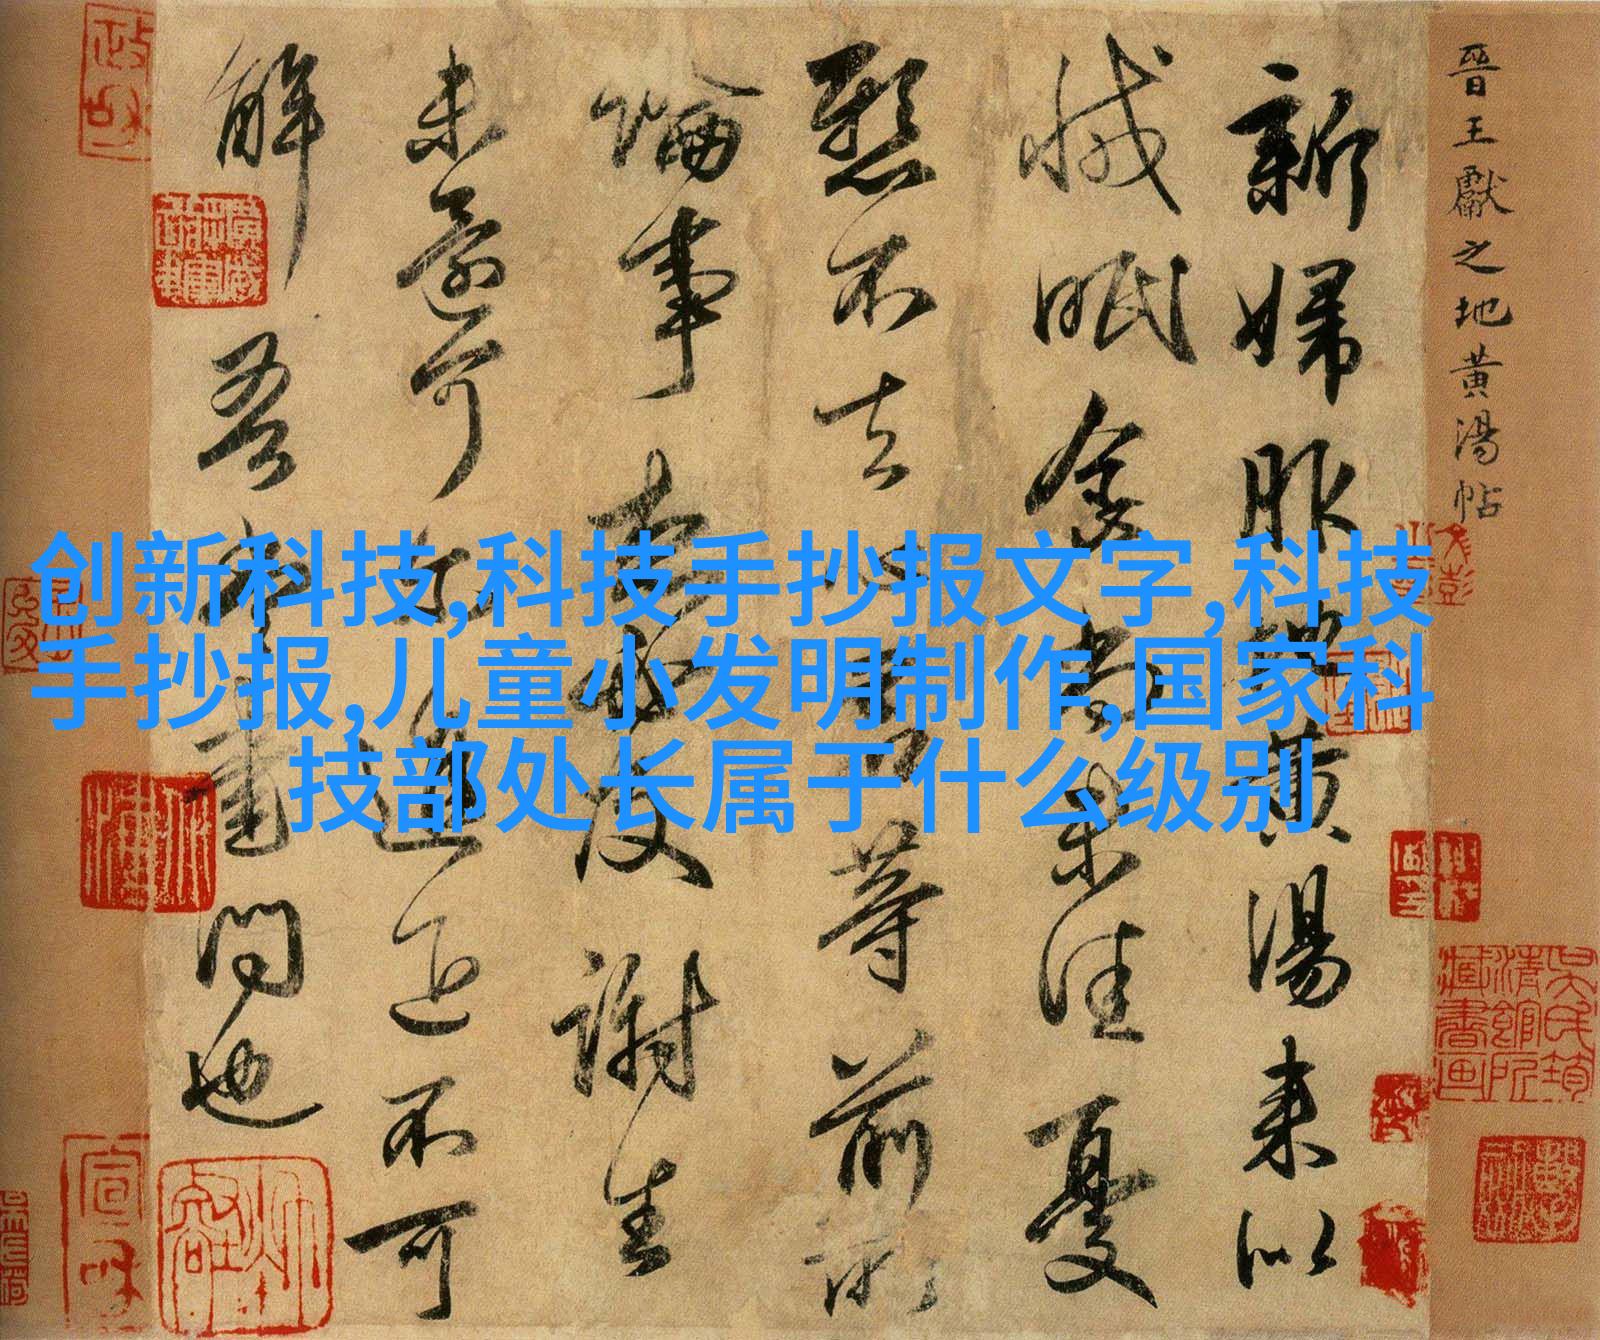 晉王獻之地黃湯帖
新婦服地黃湯来以
減眠食尚未佳憂
懸不去心君等前所
論事想必及謝生
未還可尔進退不可
解吾當書問也
创新科技,科技手抄报文字,科技
手抄报,儿童小发明制作,国家科
技部处长属于什么级别